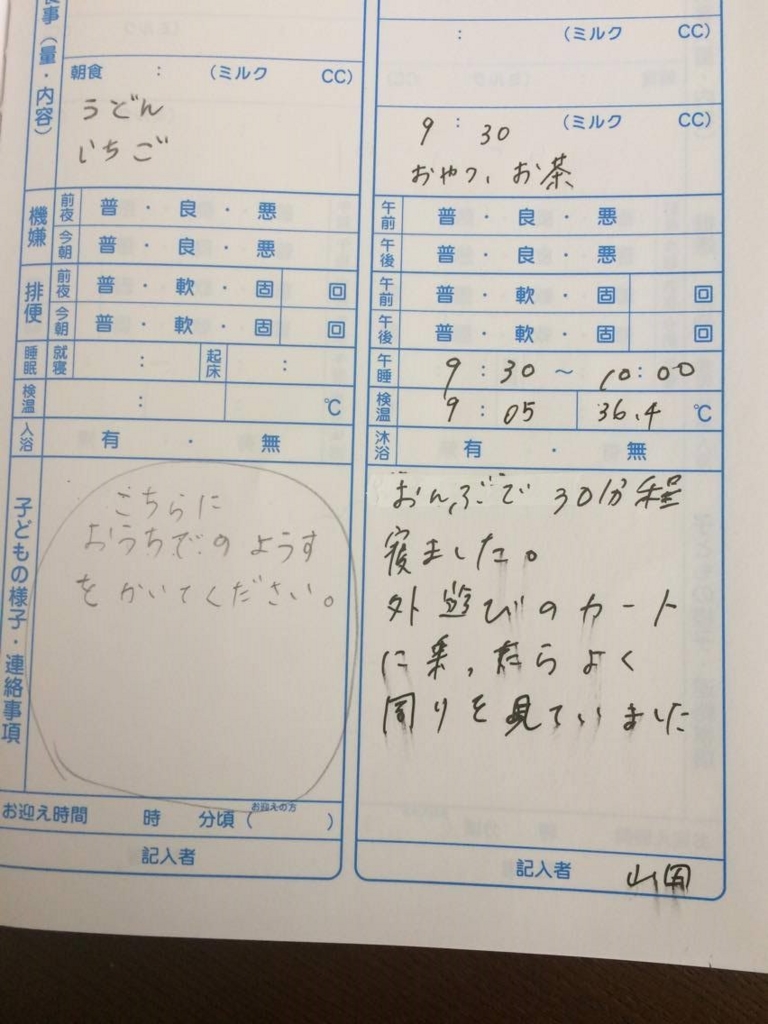 食事（量・内容）
朝食 : （ミルク CC）
うどん
いちご
機嫌
前夜 普・良・悪
今朝 普・良・悪
排便
前夜 普・軟・固 回
今朝 普・軟・固 回
睡眠 就寝 : 起床 :
検温 : ℃
入浴 有・無
子どもの様子・連絡事項
こちらに
おうちでのようす
をかいてください。
お迎え時間 時 分頃（お迎えの方 ）
記入者
: （ミルク CC）
9:30 （ミルク CC）
おやつ、お茶
午前 普・良・悪
午後 普・良・悪
午前 普・軟・固 回
午後 普・軟・固 回
午睡 9:30～10:00
検温 9:05 36.4℃
沐浴 有・無
おんぶで30分程
寝ました。
外遊びのカート
に乗ったらよく
周りを見ていました
記入者 山岡